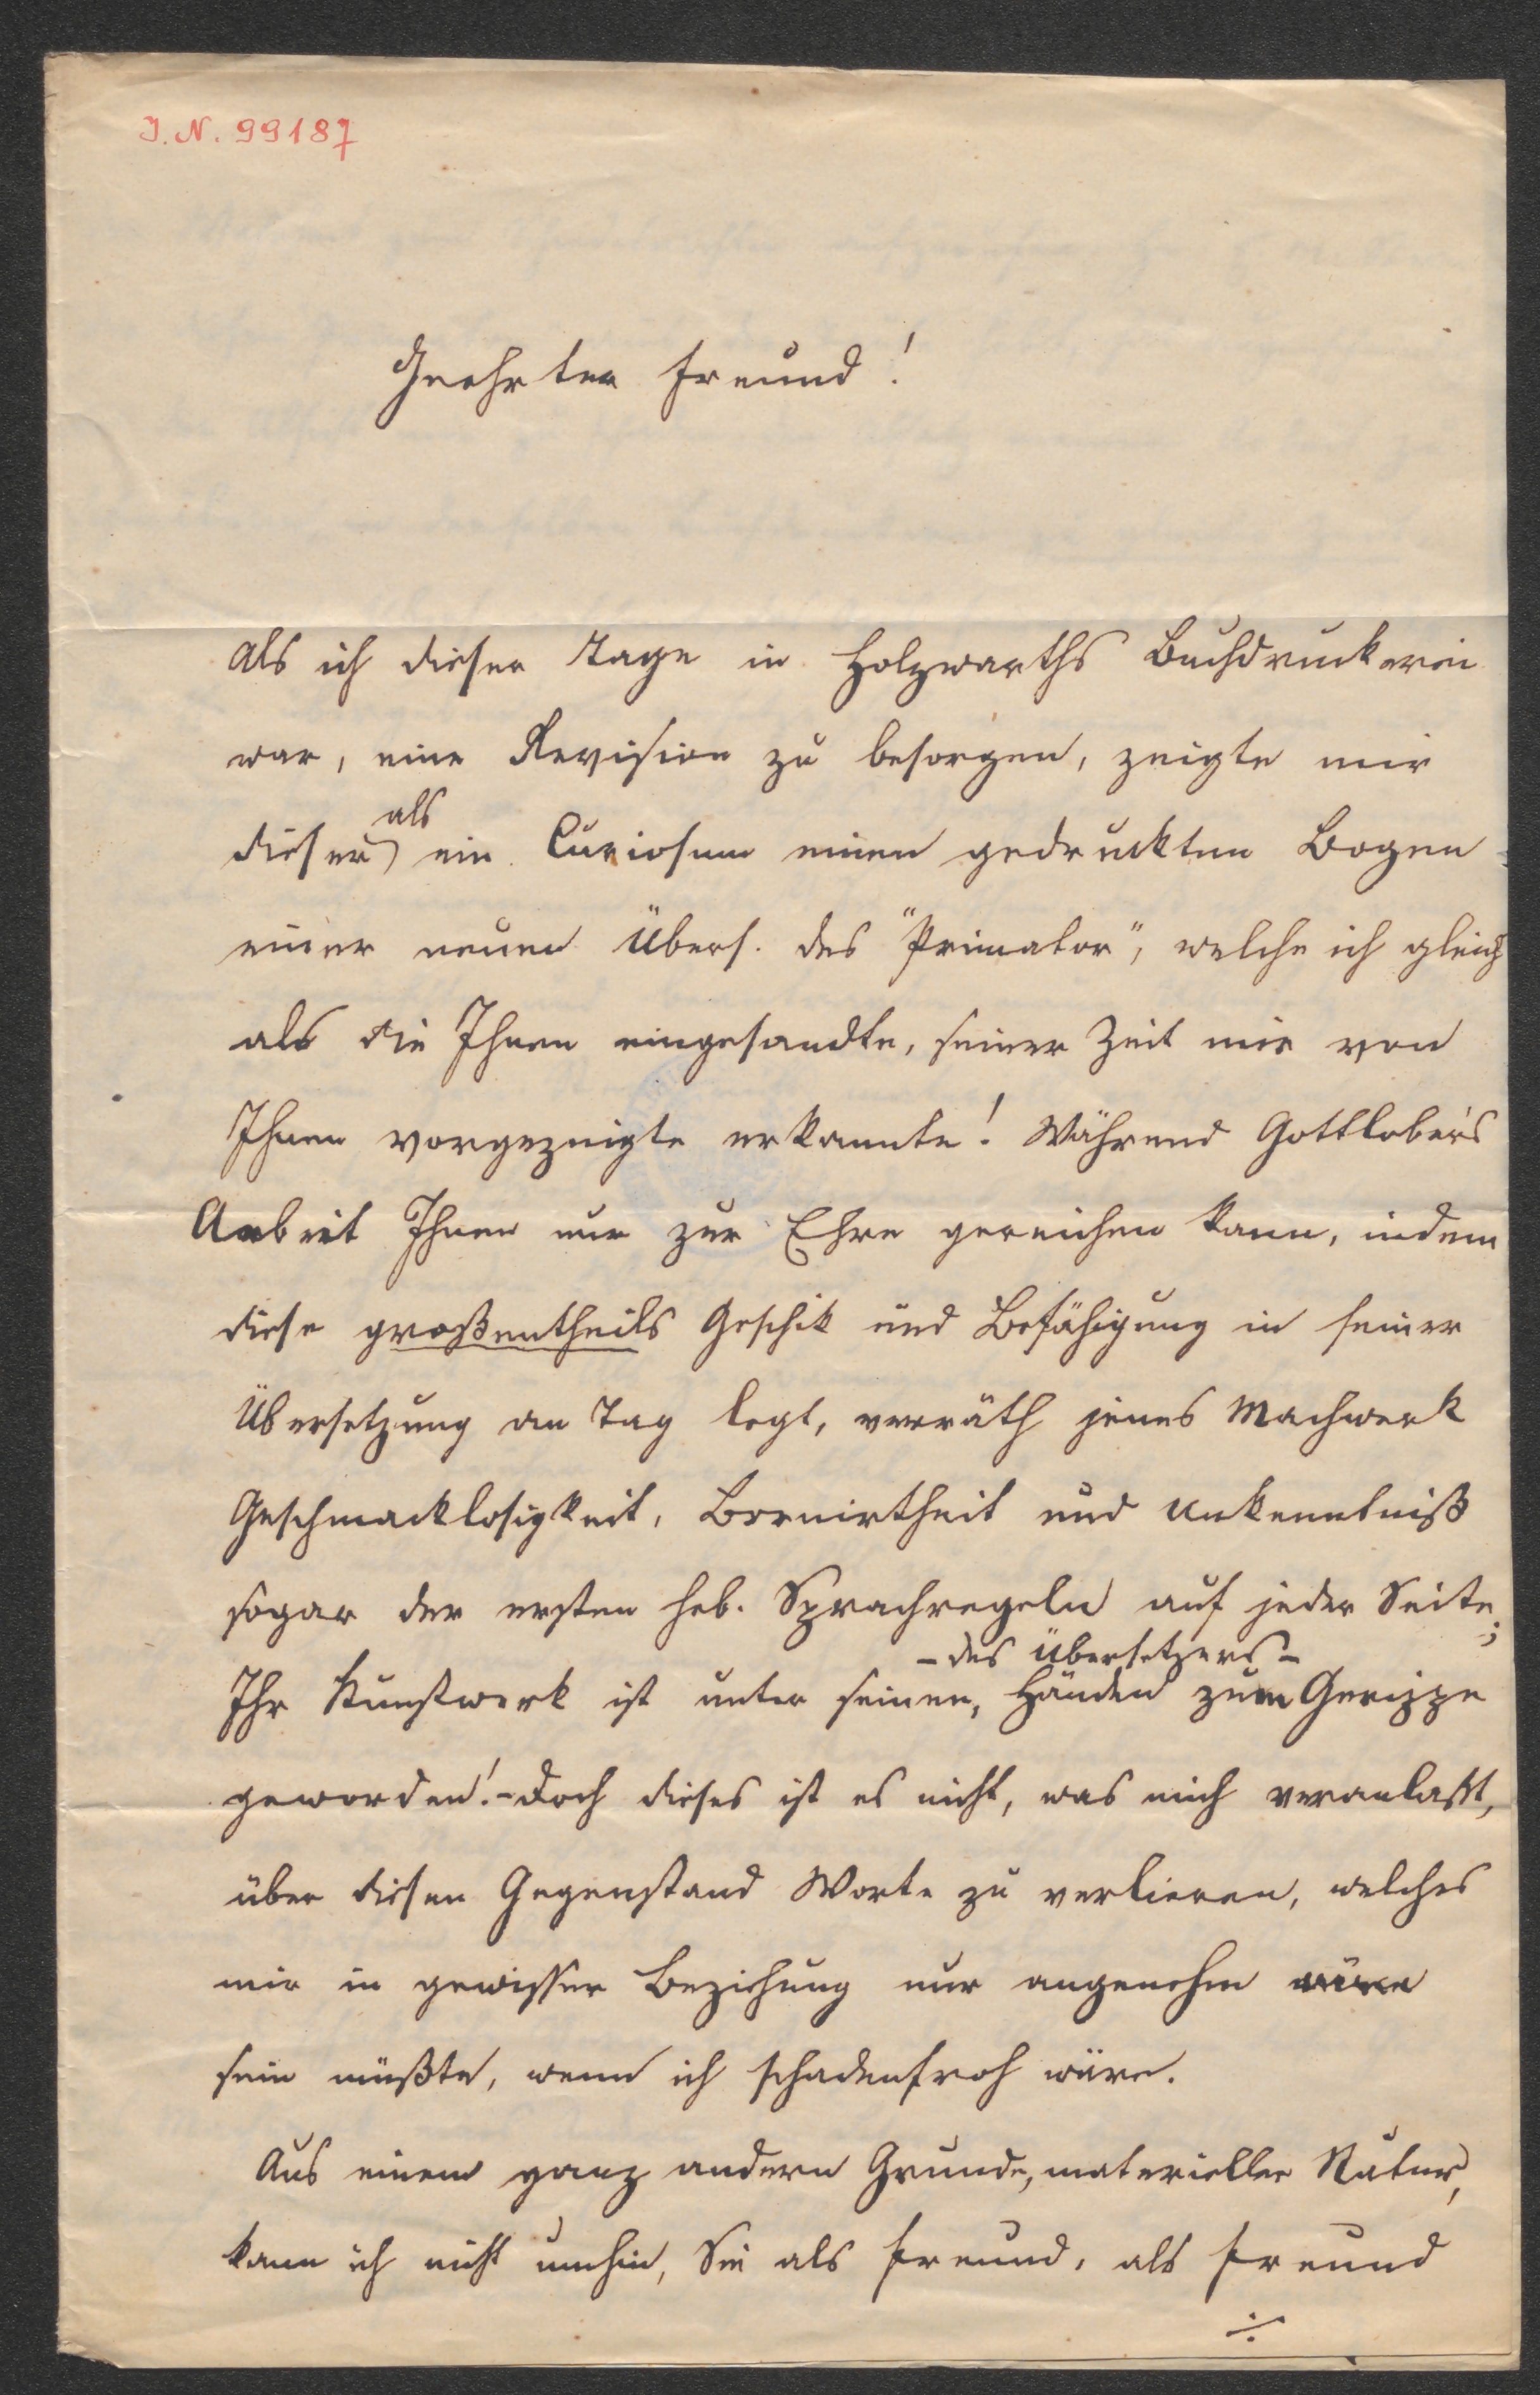 J.N. 99187
Geehrter Freund!
Als ich dieser Tage in Holzwarths Buchdruckerei
war, eine Revision zu besorgen, zeigte mir
als
dieser ein Curiosum einen gedruckten Bogen
einer neuen Übers. des "Primator", welche ich gleich
als die Ihnen eingesandte, seiner Zeit mir von
Ihnen vorgezeigte erkannte! Während Gottlober's
Arbeit Ihnen nur zur Ehre gereichen kann, indem
diese großentheils Geschik und Befähigung in seiner
Übersetzung an Tag legt, verräth jenes Machwerk
Geschmacklosigkeit, Bornirtheit und Unkenntniß
sogar der ersten heb. Sprachregeln auf jeder Seite;
- des Übersetzers -
Ihr Kunstwerk ist unter seinen, Händen zum Gerippe
geworden! - Doch dieses ist es nicht, was mich veranlaßt,
über diesen Gegenstand Worte zu verlieren, welches
mir in gewisser Beziehung nur angenehm wäre
sein müßte, wenn ich schadenfroh wäre.
Aus einem ganz andern Grunde, materieller Natur,
kann ich nicht umhin, Sie als Freund, als Freund
./.